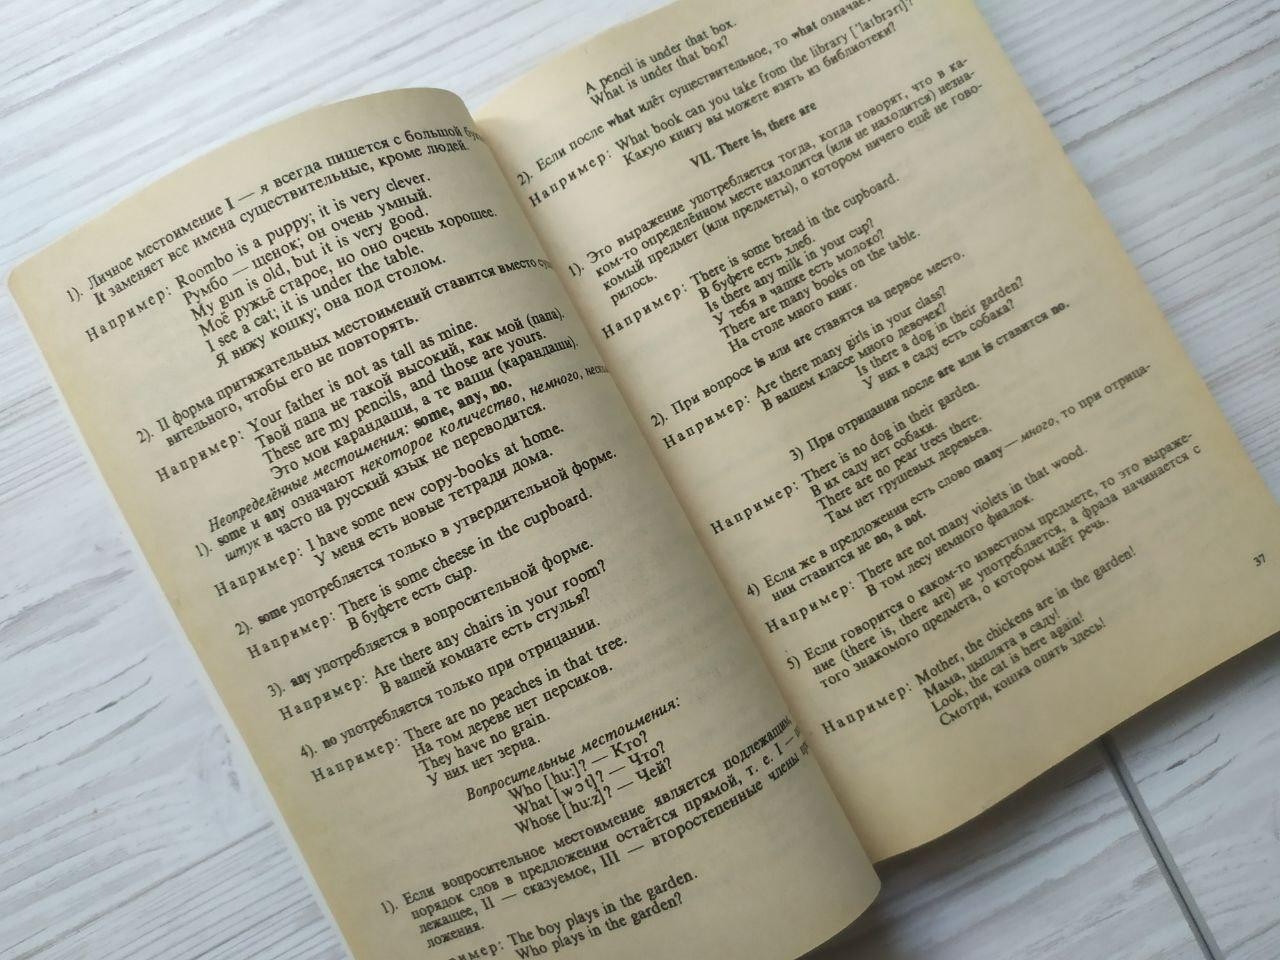 1). Личное местоимение I — я всегда пишется с большой
It заменяет все имена существительные, кроме людей.
Например: Roombo is a puppy; it is very clever.
Румбо — щенок; он очень умный.
My gun is old, but it is very good.
Моё ружьё старое, но оно очень хорошее.
I see a cat; it is under the table.
Я вижу кошку; она под столом.
2). II форма притяжательных местоимений ставится вместо
вительного, чтобы его не повторять.
Например: Your father is not as tall as mine.
Твой папа не такой высокий, как мой (папа).
These are my pencils, and those are yours.
Это мои карандаши, а те ваши (карандаши).
Неопределённые местоимения: some, any, no.
1). some и any означают некоторое количество, немного,
штук и часто на русский язык не переводится.
Например: I have some new copy-books at home.
У меня есть новые тетради дома.
2). some употребляется только в утвердительной форме.
Например: There is some cheese in the cupboard.
В буфете есть сыр.
3). any употребляется в вопросительной форме.
Например: Are there any chairs in your room?
В вашей комнате есть стулья?
4). no употребляется только при отрицании.
Например: There are no peaches in that tree.
На том дереве нет персиков.
They have no grain.
У них нет зерна.
Вопросительные местоимения:
Who [hu:]? — Кто?
What [wɔt]? — Что?
Whose [hu:z]? — Чей?
1). Если вопросительное местоимение является подлежащим,
порядок слов в предложении остаётся прямой, т. е. I —
лежащее, II — сказуемое, III — второстепенные члены
ложения.
имер: The boy plays in the garden.
Who plays in the garden?
A pencil is under that box.
What is under that box?
2). Если после what идёт существительное, то what означает
Например: What book can you take from the library ['laıbrərı]?
Какую книгу вы можете взять из библиотеки?
VII. There is, there are
1). Это выражение употребляется тогда, когда говорят, что в ка-
ком-то определённом месте находится (или не находится) незна-
комый предмет (или предметы), о котором ничего ещё не гово-
рилось.
Например: There is some bread in the cupboard.
В буфете есть хлеб.
Is there any milk in your cup?
У тебя в чашке есть молоко?
There are many books on the table.
На столе много книг.
2). При вопросе is или are ставятся на первое место.
Например: Are there many girls in your class?
В вашем классе много девочек?
Is there a dog in their garden?
У них в саду есть собака?
3) При отрицании после are или is ставится no.
Например: There is no dog in their garden.
В их саду нет собаки.
There are no pear trees there.
Там нет грушевых деревьев.
4) Если же в предложении есть слово many — много, то при отрица-
нии ставится не no, а not.
Например: There are not many violets in that wood.
В том лесу немного фиалок.
5) Если говорится о каком-то известном предмете, то это выраже-
ние (there is, there are) не употребляется, а фраза начинается с
того знакомого предмета, о котором идёт речь.
Например: Mother, the chickens are in the garden!
Мама, цыплята в саду!
Look, the cat is here again!
Смотри, кошка опять здесь!
37